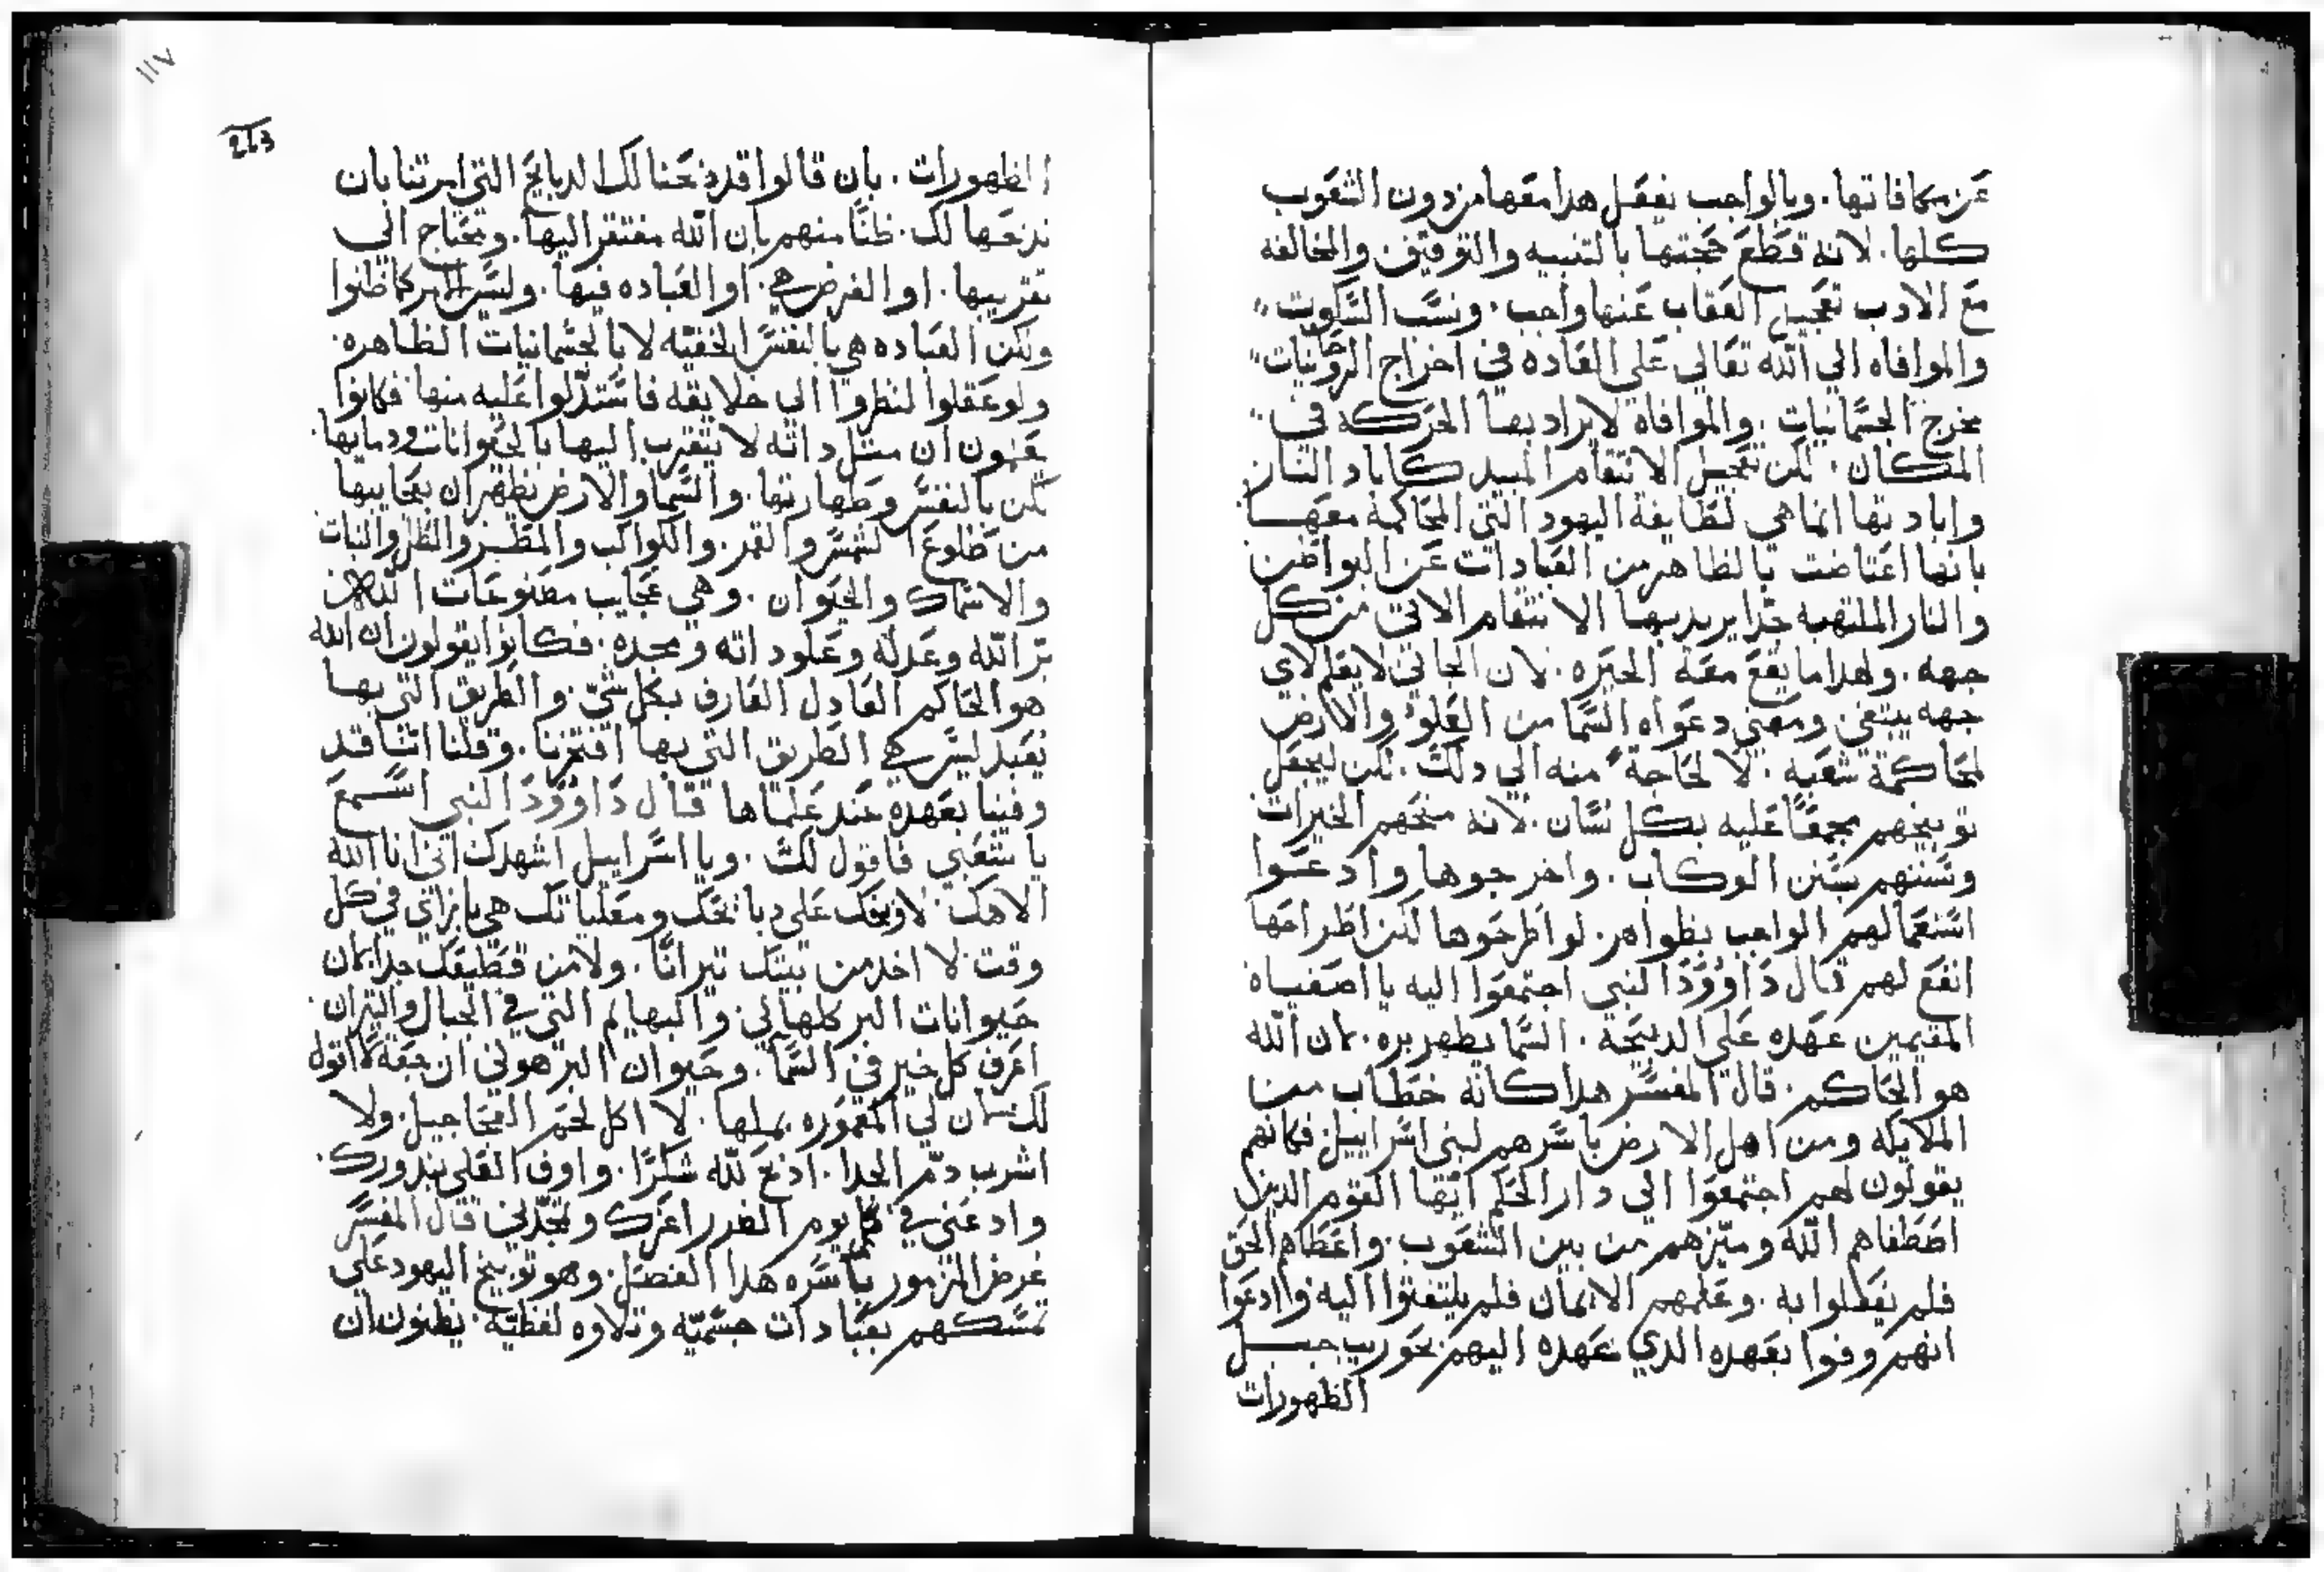 عن مكافاتها. وبالواجب يفعل هدا معها من دون الشعوب
كلها. لانه قطع حجتها بالتنبيه والتوقيف والمخالفه
مع الادب تعجيل العقاب عنها واجب. ونسب السكوت
والموافاه الي الله تعالي علي العاده في اخراج الروحانيات
مخرج الجسمانيات. والموافاة لايراد بها الحركه في
المكان. لكن تعجيل الانتقام المبيد كاباد النار
وابادتها انما هي لطايفة اليهود التي المحاكمة معها
بانها اعتاضت بالظاهر من العبادات عن البواطن
والنار الملتهبه جدا يريد بها الانتقام الاتي من كل
جهه. ولهدا ما يقع معه الحيره. لان الجاني لا يعلم لاي
جهه يبتغي. ومعني دعواه السما من العلو والارض
لمحاكمة شعبه. لا لحاجة منه الي دلك. لكن ليجعل
توبيخهم مجمعا عليه بكل لسان. لانه منحهم الخيرات
وسننهم بسنن الوكاب. واخرجوها وادعوا
استعمالهم الواجب بظواهر. لو اطرحوها لكن اطراحها
انفع لهم قال داوود النبي اجتمعوا اليه يا اصفياه
المقيمين عهده علي الدبيحه. السما يظهر بره. بان الله
هو الحاكم. قال المفسر هدا كانه خطاب من
الملايكه ومن اهل الارض باسرهم لبني اسراييل فكانهم
يقولون لهم اجتمعوا الي دار الحكم ايها القوم الدين
اصطفاهم الله وميزهم من بين الشعوب. واعطاهم الحق
فلم يعملوا به. وعلمهم الايمان فلم يلتفتوا اليه وادعوا
انهم وفوا بعهده الدي عهده اليهم بحوريب جبل
الظهورات
٢٤٣
١١٧
الظهورات. بان قالوا قد دبحنا لك الدبايح التي امرتنا بان
ندبحها لك. ظنا منهم بان الله مفتقر اليها. ومحتاج الي
تقريبها. او الغرض هي. او العباده فيها. وليس الامر كما ظنوا
ولكن العباده هي بالنفس الخفيه لا بالجسمانيات الظاهره.
ولو عقلوا لنظروا الي خلايقه فاستدلوا عليه منها. فكانوا
يعلمون ان مثل داته لا يتقرب اليها بالحيوانات ودمايها.
لكن بالنفس وطهارتها. والسما والارض يظهران بعجايبها
من طلوع الشمس والقمر. والكواكب والمطر والظل والنبات
والاسماك والحيوان. وهي عجايب مصنوعات الله
بر الله وعدله وعلو داته ومجده. فكانوا يقولون ان الله
هو الحاكم العادل العارف بكل شي. والطريق التي بها
نعبد ليس هي الطريق التي بها افتخرنا. وقلنا اننا قد
وفينا بعهده عند علماها قال داوود النبي اسمع
يا شعبي فاقول لك. ويا اسراييل اشهدك انني انا الله
الاهك. لاوبخك علي دبايحك ومعلياتك هي بازاي في كل
وقت. لا اخد من بيتك تيرانا. ولا من قطيعك جدا. بان
حيوانات البر كلها لي. والبهايم التي في الجبال والتيران.
اعرف كل خير في السما. وحيوان البر هو لي ان جعت لا اقول
لك. بان لي المعموره بملها. لا اكل لحم العجاجيل. ولا
اشرب دم الجدا. ادبح لله شكرا. واوف العلي ندورك.
وادعني في يوم الضرر اعزك وتمجدني قال المفسر
غرض المزمور باسره هدا الفصل. وهو توبيخ اليهود علي
تمسكهم بعبادات جسميه وتلاوه لفظيه. يظنون ان